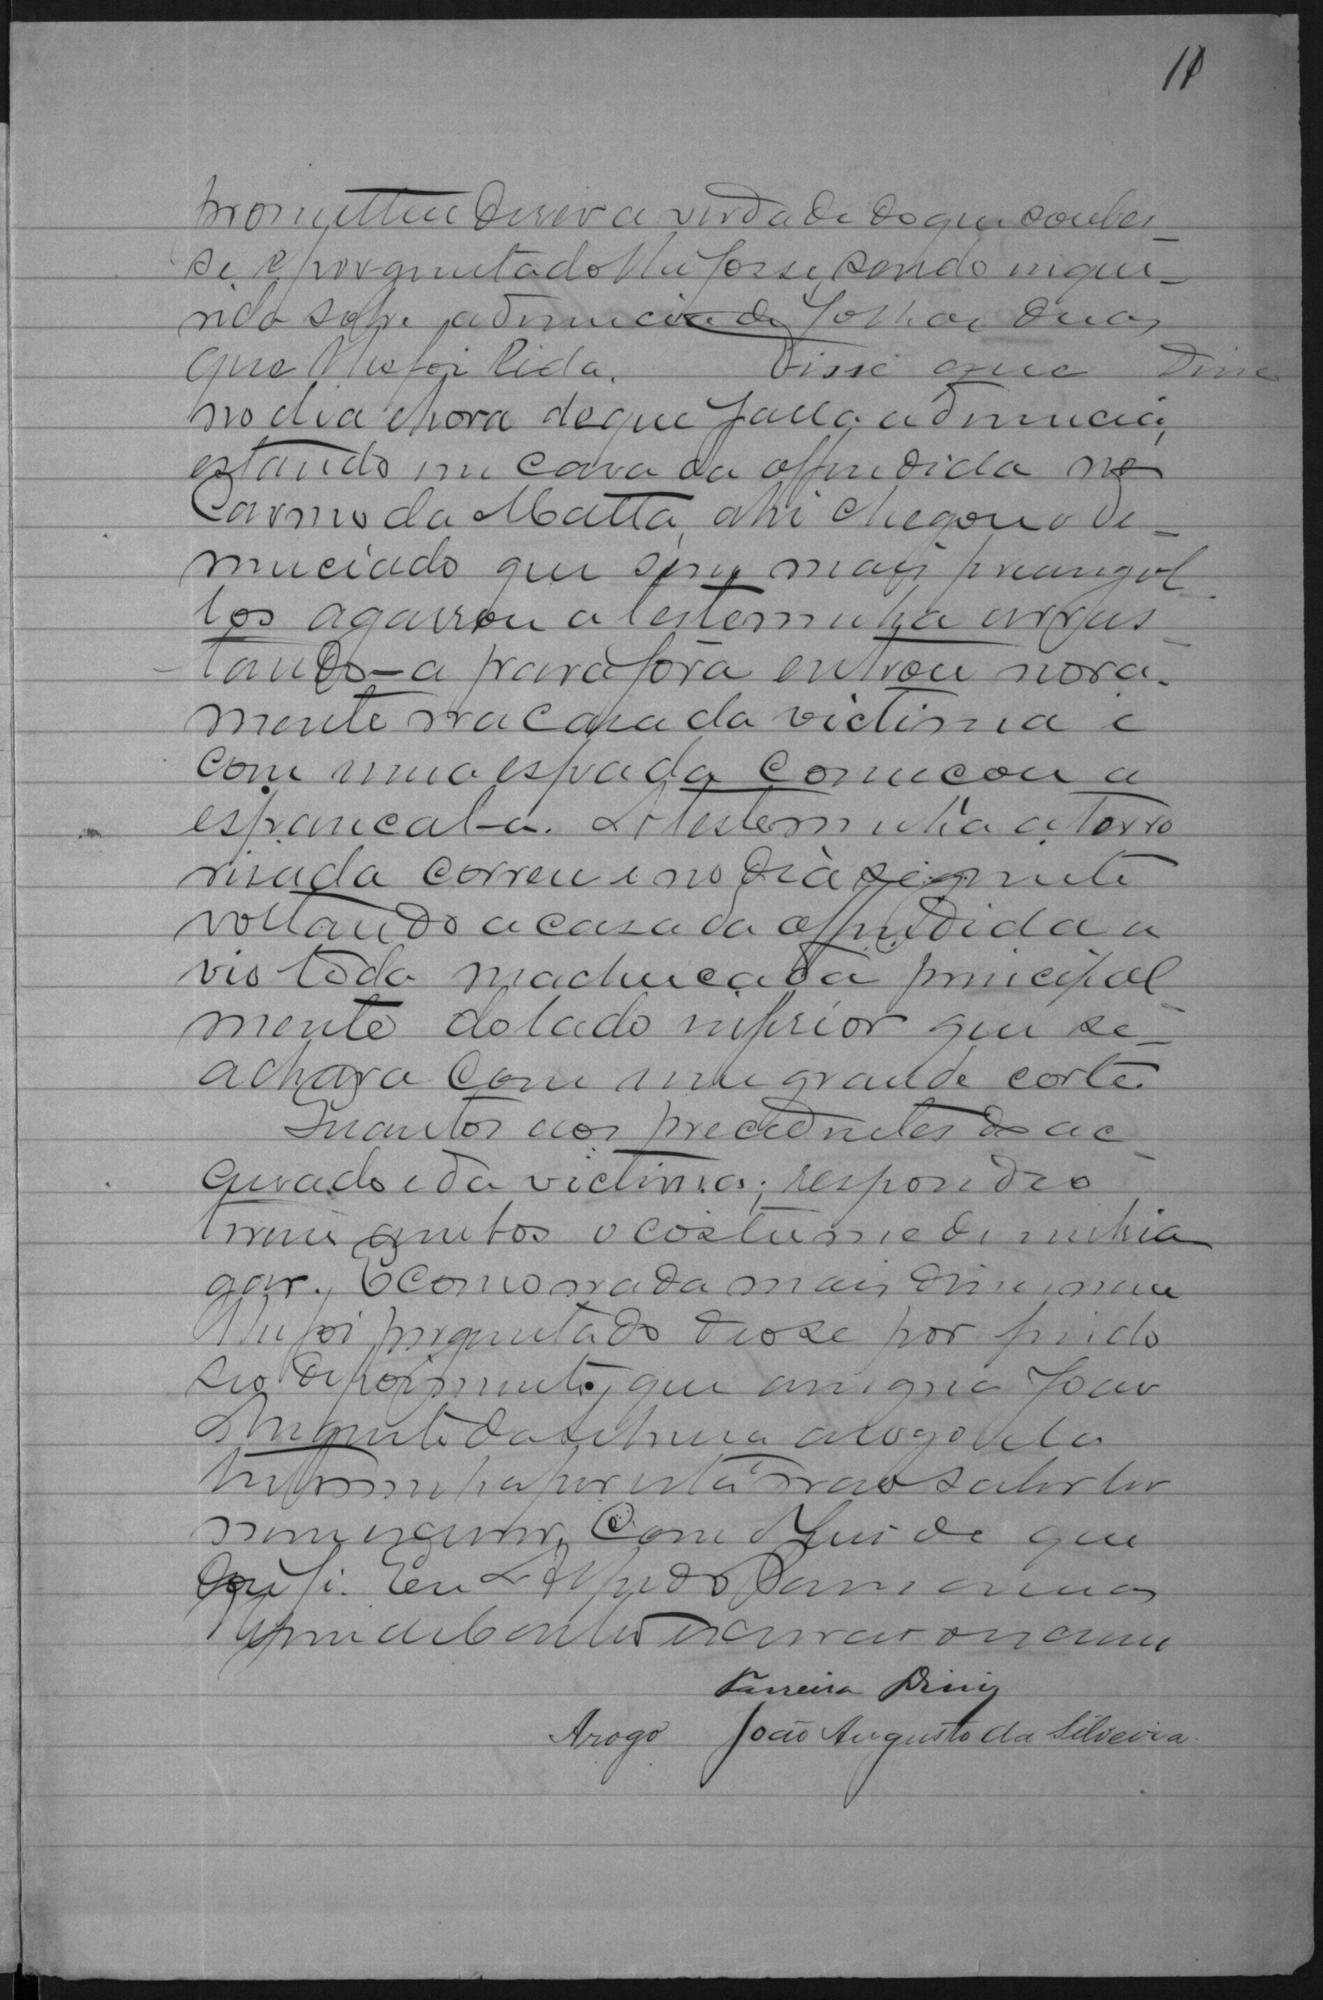 11
prometteu diser a verdade do que soubes-
se e porguntado lhe fosse, sendo inqui-
rido sobre a denuncia de folhas duas
que lhe foi lida. Disse que Disse
no dia e hora de que falla a denuncia,
estando em casa da offendida no
Carmo da Matta, ahi chegou o de-
nunciado que sem mais preangol-
los agarrou a testemunha arras-
tando-a para fóra entrou nova-
mente na casa da victima e
com uma espada comecou a
espancal-a. A testemunha atorro
risada correu e no dia seguinte
voltando a casa da offendida a
vio toda machucada principal
mente do lado inferior que se-
achava com um grande corte.
Quantos aos precedentes do ac-
cusado e da victima, respondeo
terem ambos o costume de imbria
gar. E como nada mais disse nem
lhe foi preguntado deo-se por findo
seo depoimento, que assigna João
Augusto da Silveira a rogo da
testemunha por esta não saber ler
nem escrever, Com o Juis de que
dou fé. Eu Alfredo
escrivão o escrevi
Parreira Diniz
Arogo João Augusto da Silveira.